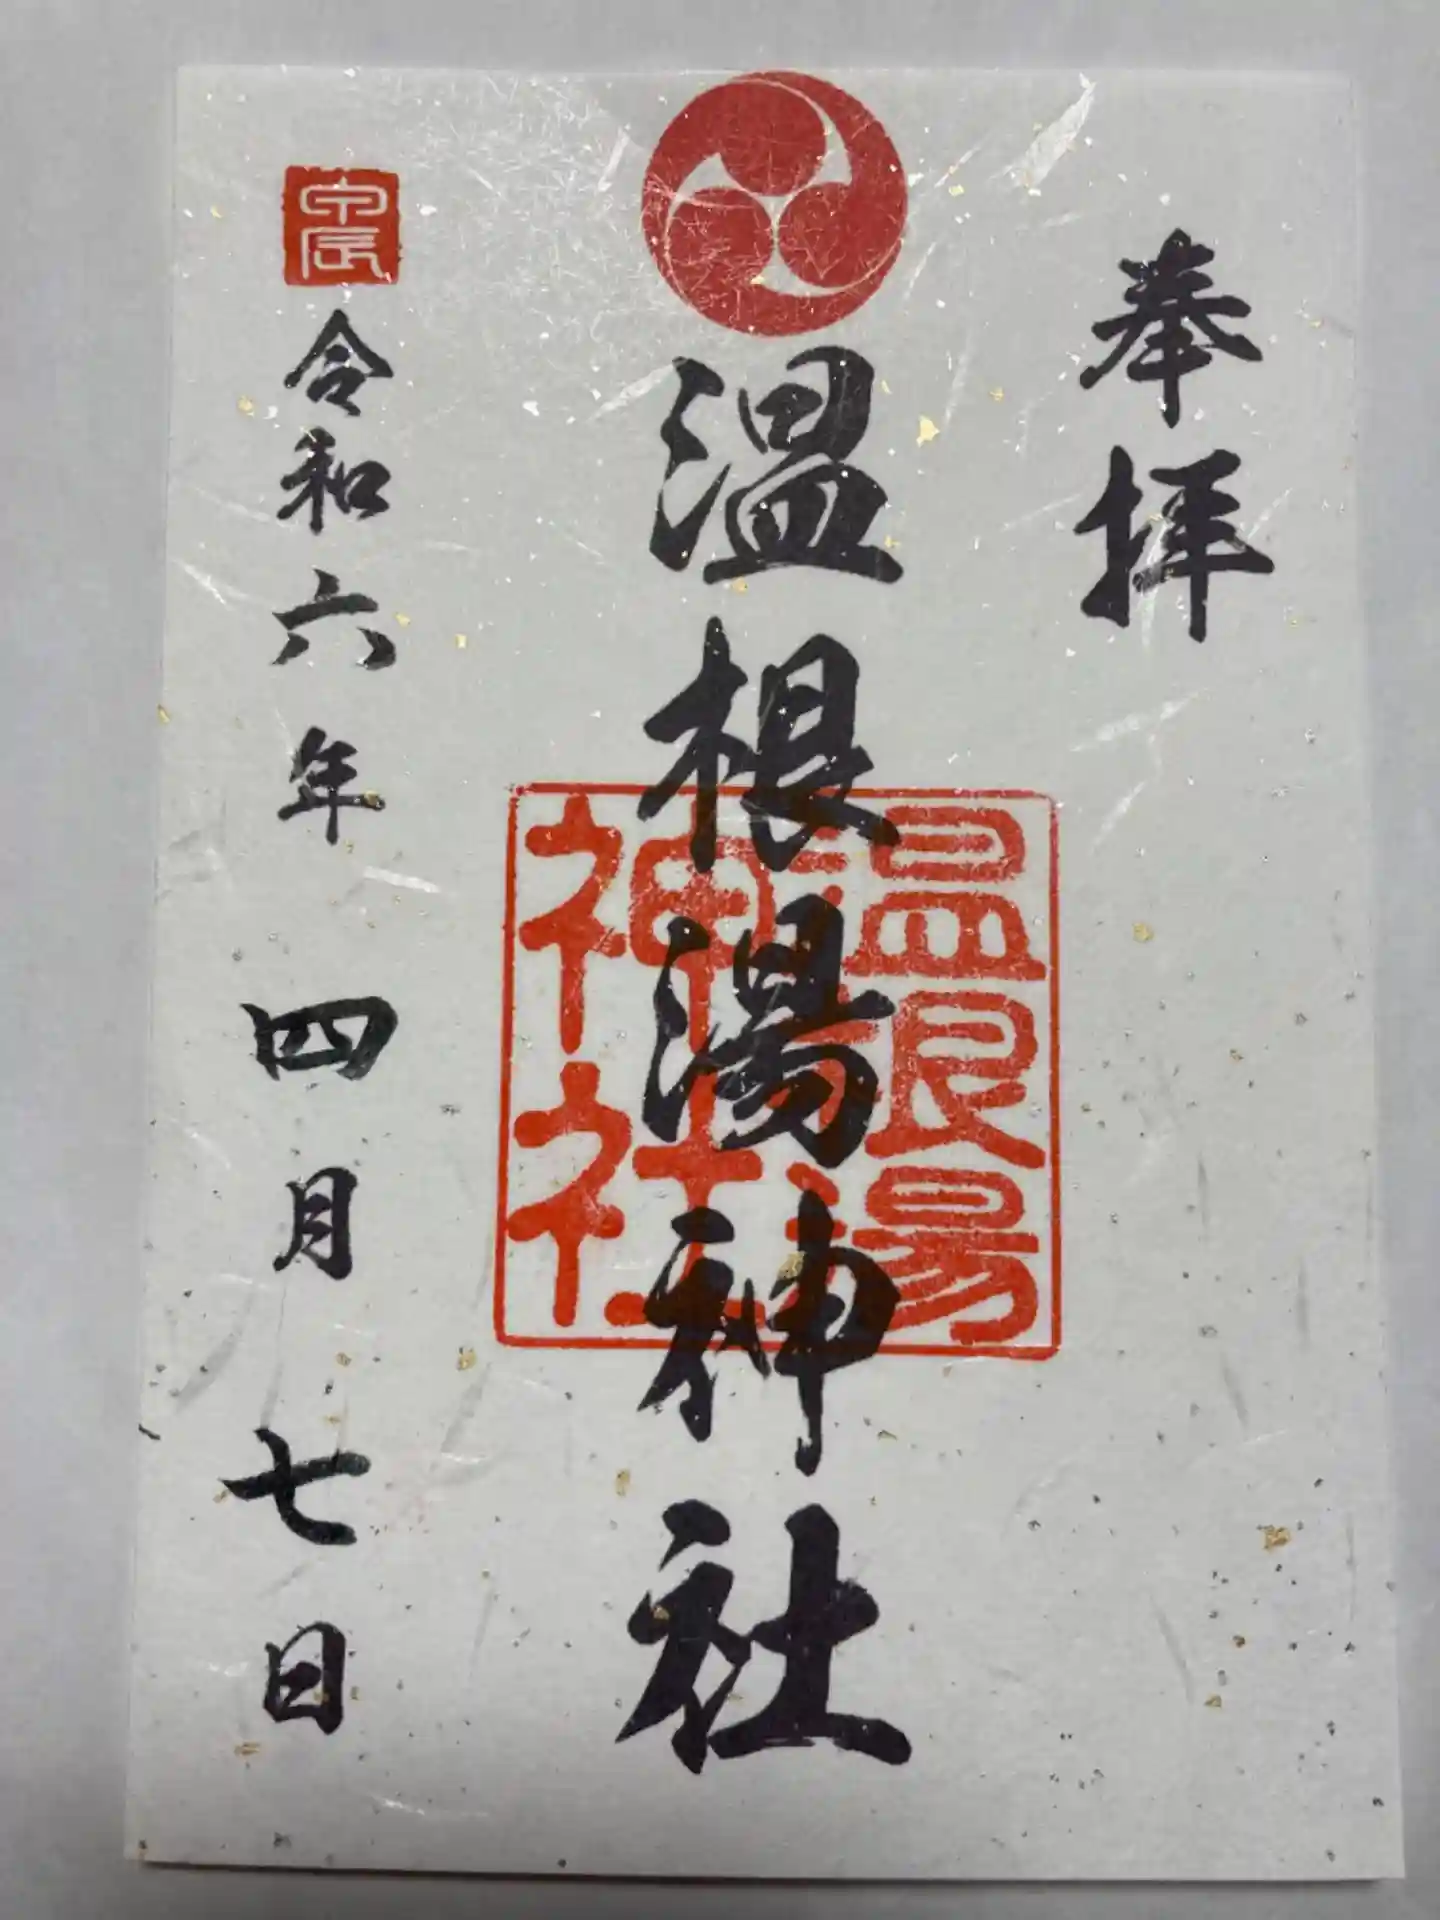 奉拝
温根湯神社
温根湯
神社
甲辰
令和六年 四月七日